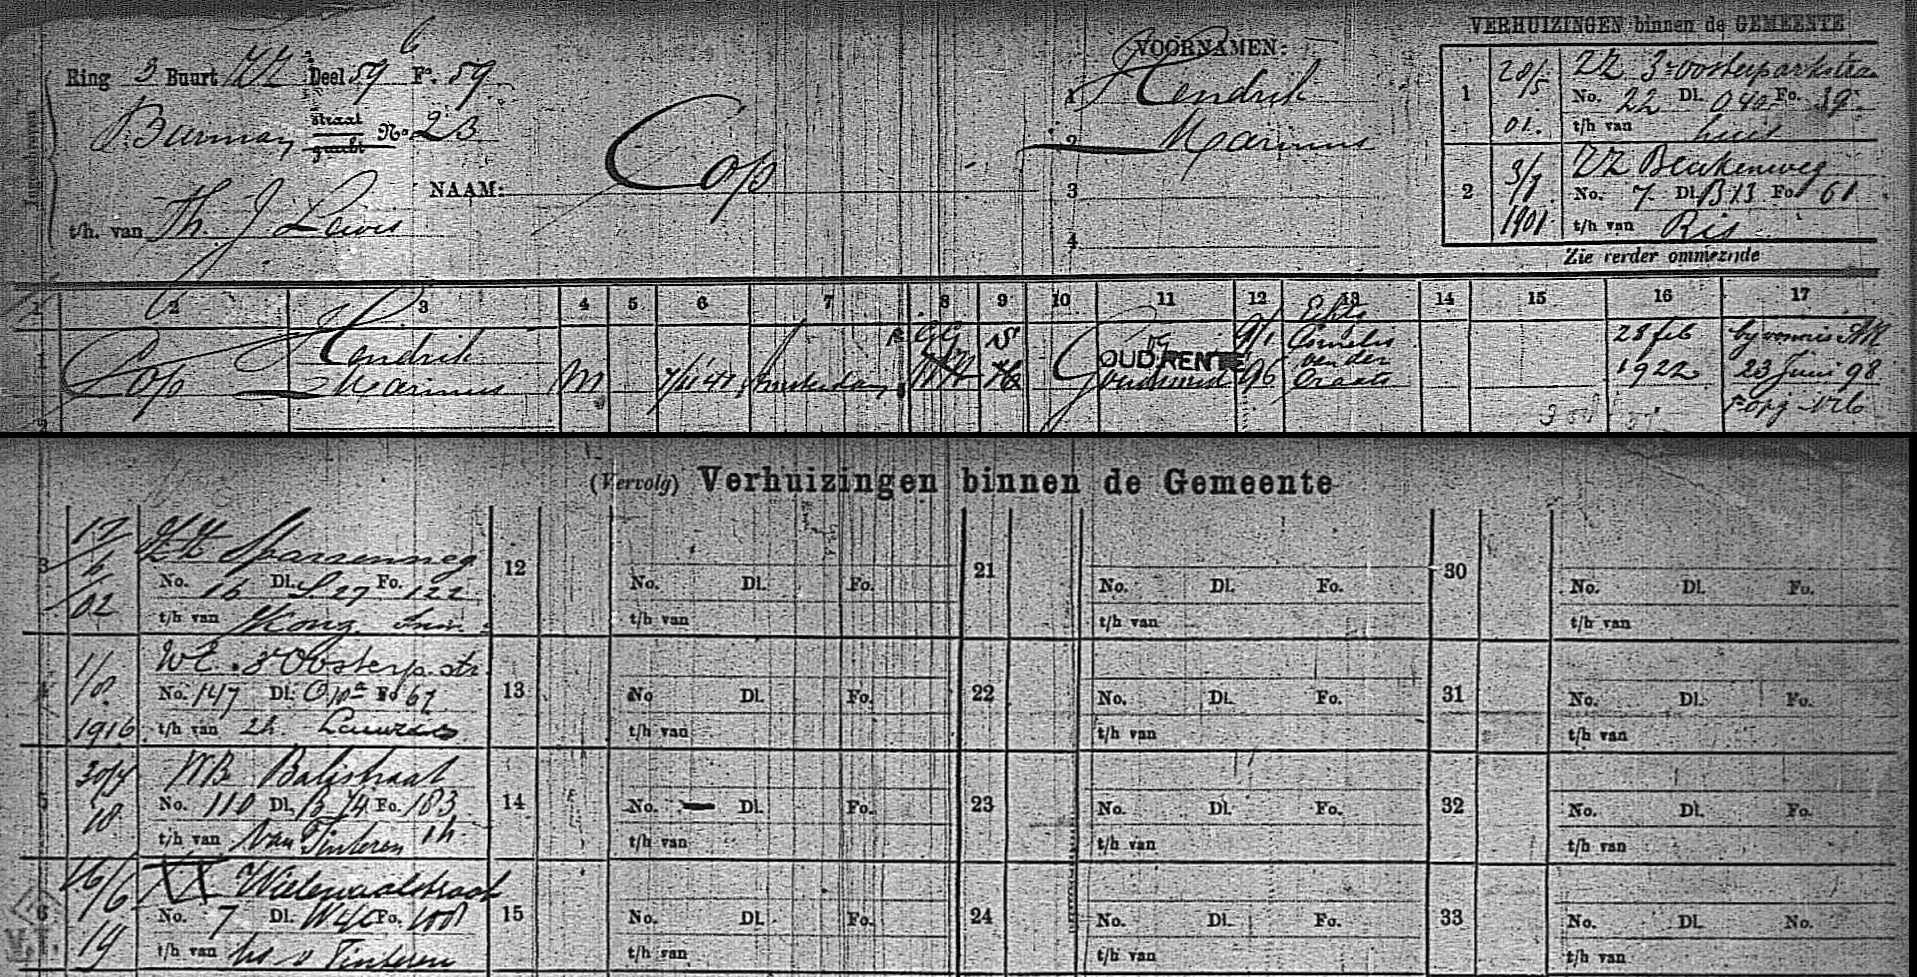 Ring 3 Buurt ZZ Deel 59 Fo. 59
6
P. Burman straat gracht No 23
t/h. van Th. J. Lewis
NAAM: Cop
VOORNAMEN:
1 Hendrik
2 Marinus
3
4
VERHUIZINGEN binnen de GEMEENTE
1 28/5 01. ZZ 3e Oosterparkstraa
No. 22 Dl. Fo. 39
t/h van huis
2 3/7 1901 ZZ Beukenweg
No. 7 Dl. B13 Fo. 61
t/h van Ris
Zie verder ommezijde
1 2 3 4 5 6 7 8 9 10 11 12 13 14 15 16 17
Cop Hendrik Marinus M Amsterdam GG NH S OUD.RENTE Goudsmid 9/1 96 Echtg Cornelia van der Craats 28 feb 1922 by vonnis AR 23 Juni 98
(Vervolg) Verhuizingen binnen de Gemeente
3 17/6/02 ZZ Sparrenweg
No. 16 Dl. S27 Fo. 122
t/h van
4 1/8 1916 WE. 3e Oosterp. str
No. 147 Dl. O10a Fo 67
t/h van 2h. Lauwers
5 30/4 18 WB Balistraat
No. 110 Dl. B 74 Fo. 183
t/h van van Tinteren 1h
6 16/6 19 Wielewaalstraat
No. 7 Dl. W4c Fo. 108
t/h van hs v Tinteren
12
No. Dl. Fo.
t/h van
13
No Dl. Fo.
t/h van
14
No. Dl. Fo.
t/h van
15
No. Dl. Fo.
t/h van
21
No. Dl. Fo.
t/h van
22
No. Dl. Fo.
t/h van
23
No. Dl. Fo.
t/h van
24
No. Dl. Fo.
t/h van
30
No. Dl. Fo.
t/h van
31
No. Dl. Fo.
t/h van
32
No. Dl. Fo.
t/h van
33
No. Dl. No.
t/h van